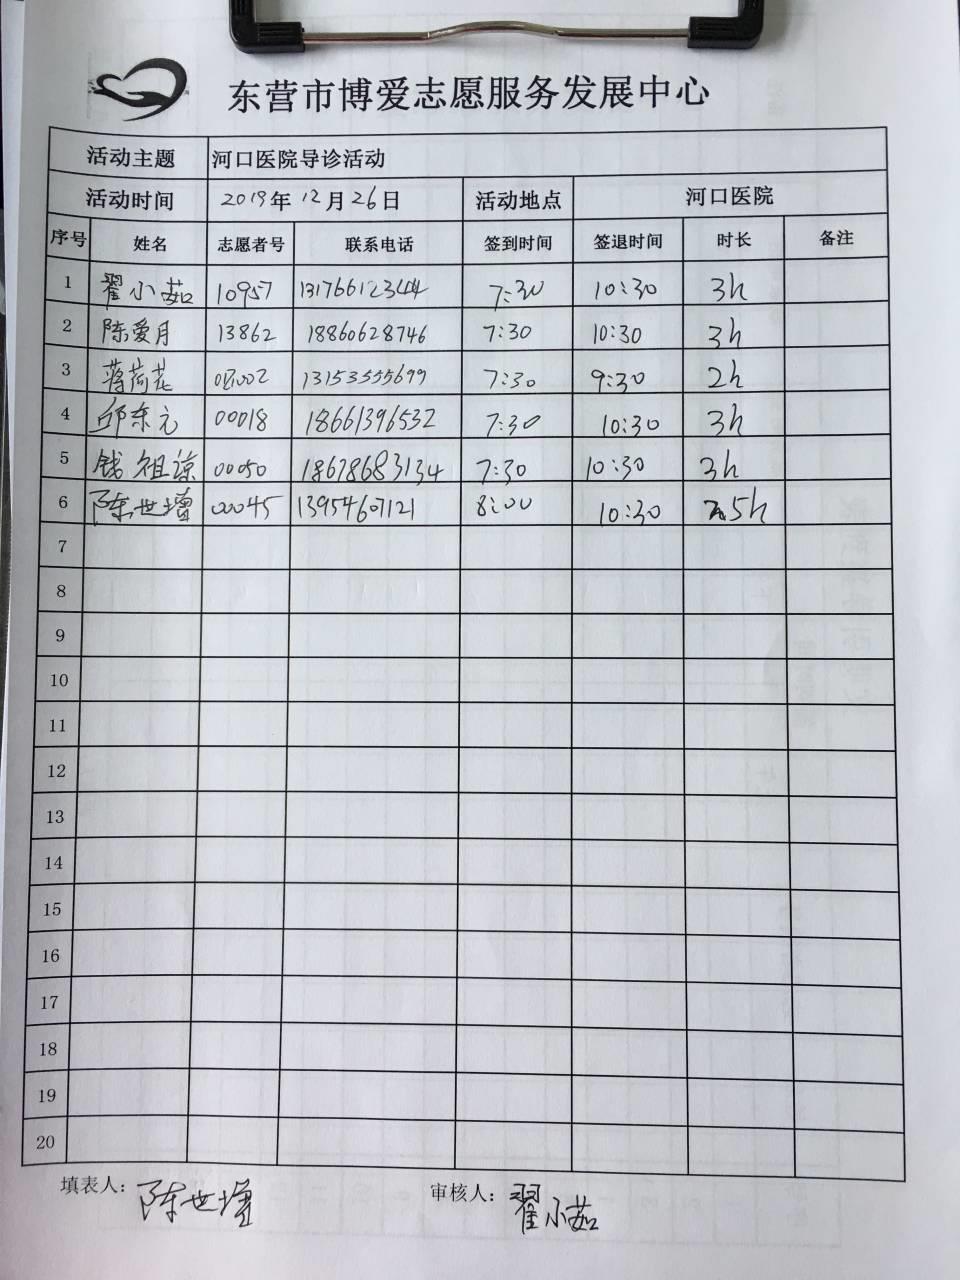 东营市博爱志愿服务发展中心
活动主题 河口医院导诊活动
活动时间 2019年12月26日 活动地点 河口医院
序号 姓名 志愿者号 联系电话 签到时间 签退时间 时长 备注
1 翟小茹 10957 13176612344 7:30 10:30 3h
2 陈爱月 13862 18860628746 7:30 10:30 3h
3 蒋荷花 13153555699 7:30 9:30 2h
4 邱东元 00018 18661396532 7:30 10:30 3h
5 钱祖谅 00050 18678683134 7:30 10:30 3h
6 陈世增 00045 13954607121 8:00 10:30 2.5h
7
8
9
10
11
12
13
14
15
16
17
18
19
20
填表人: 陈世增 审核人: 翟小茹